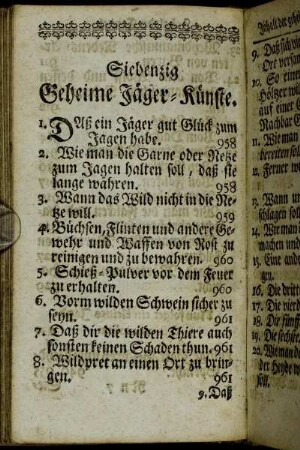 Siebenzig
Geheime Jäger-Künste.
1. Daß ein Jäger gut Glück zum
Jagen habe. 958
2. Wie man die Garne oder Netze
zum Jagen halten soll, daß sie
lange währen. 958
3. Wann das Wild nicht in die Ne-
tze will. 959
4. Büchsen, Flinten und andere Ge-
wehr und Waffen von Rost zu
reinigen und zu bewahren. 960
5. Schieß-Pulver vor dem Feuer
zu erhalten. 960
6. Vorm wilden Schwein sicher zu
seyn. 961
7. Daß dir die wilden Thiere auch
sonsten keinen Schaden thun. 961
8. Wildpret an einen Ort zu brin-
gen. 961
9. Daß
9. Daß
Ort
10. So
auf einer
Nachbar
11. Wie
12. Ferner
13. Wann
14. Wie
machen und
15. Eine
16. Die dritte
17. Die
18. Die
19. Die sechste
20. Wie man
soll.